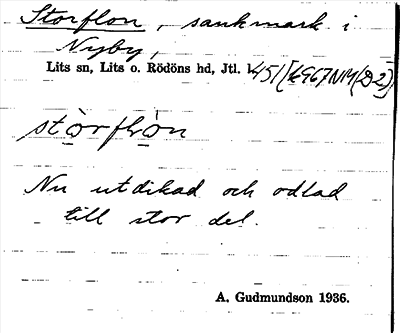 Storflon, sankmark i
Nyby,
Lits sn, Lits o. Rödöns hd, Jtl.
stòrflòn
Nu utdikad och odlad
till stor del.
A. Gudmundson 1936.